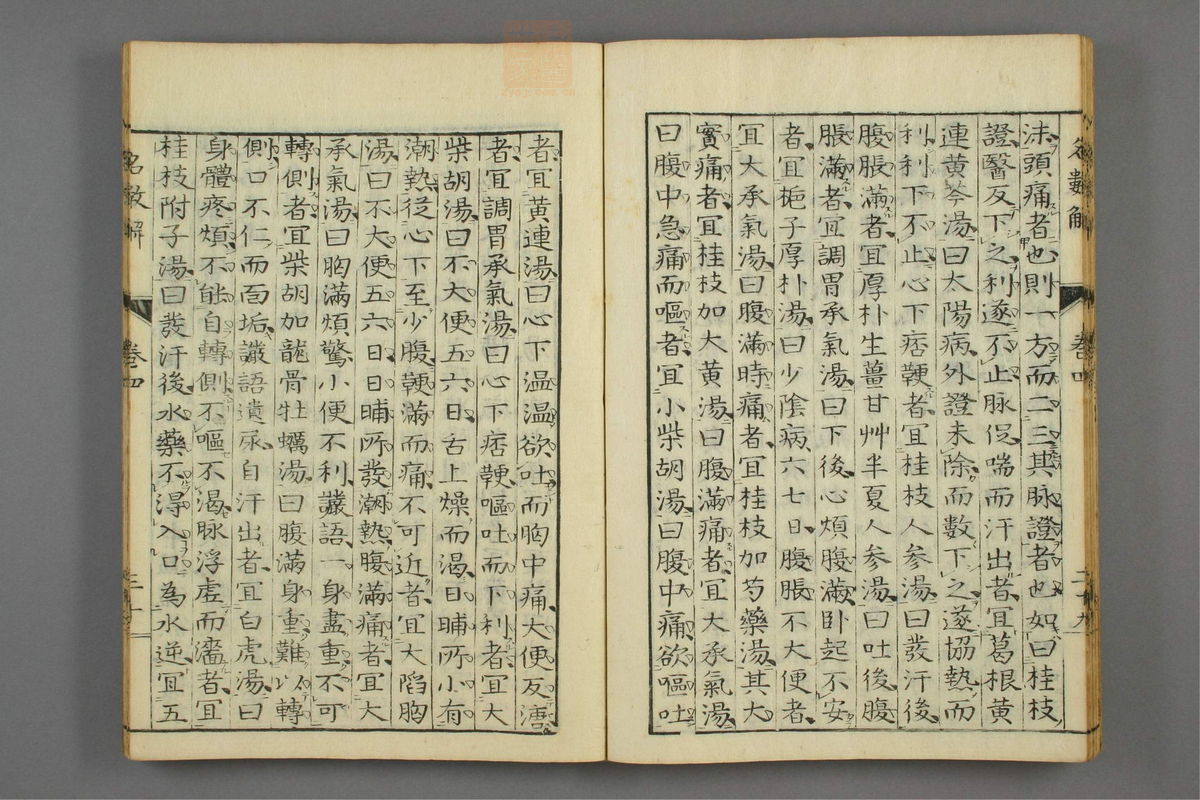 名數解 卷四 二十九
沫頭痛者也則一方而二三其脉證者也如曰桂枝
證醫反下之利遂不止脉促喘而汗出者宜葛根黃
連黃芩湯曰太陽病外證未除而數下之遂協熱而
利利下不止心下痞鞕者宜桂枝人參湯曰發汗後
腹脹滿者宜厚朴生薑甘艸半夏人參湯曰吐後腹
脹滿者宜調胃承氣湯曰下後心煩腹滿臥起不安
者宜梔子厚朴湯曰少陰病六七日腹脹不大便者
宜大承氣湯曰腹滿時痛者宜桂枝加芍藥湯其大
實痛者宜桂枝加大黃湯曰腹滿痛者宜大承氣湯
曰腹中急痛而嘔者宜小柴胡湯曰腹中痛欲嘔吐
者宜黃連湯曰心下温温欲吐而胸中痛大便反溏
者宜調胃承氣湯曰心下痞鞕嘔吐而下利者宜大
柴胡湯曰不大便五六日舌上燥而渴日晡所小有
潮熱從心下至少腹鞕滿而痛不可近者宜大陷胸
湯曰不大便五六日日晡所發潮熱腹滿痛者宜大
承氣湯曰胸滿煩驚小便不利讝語一身盡重不可
轉側者宜柴胡加龍骨牡蠣湯曰腹滿身重難以轉
側口不仁而面垢讝語遺尿自汗出者宜白虎湯曰
身體疼煩不能自轉側不嘔不渴脉浮虛而濇者宜
桂枝附子湯曰發汗後水藥不得入口為水逆宜五
名數解 卷四